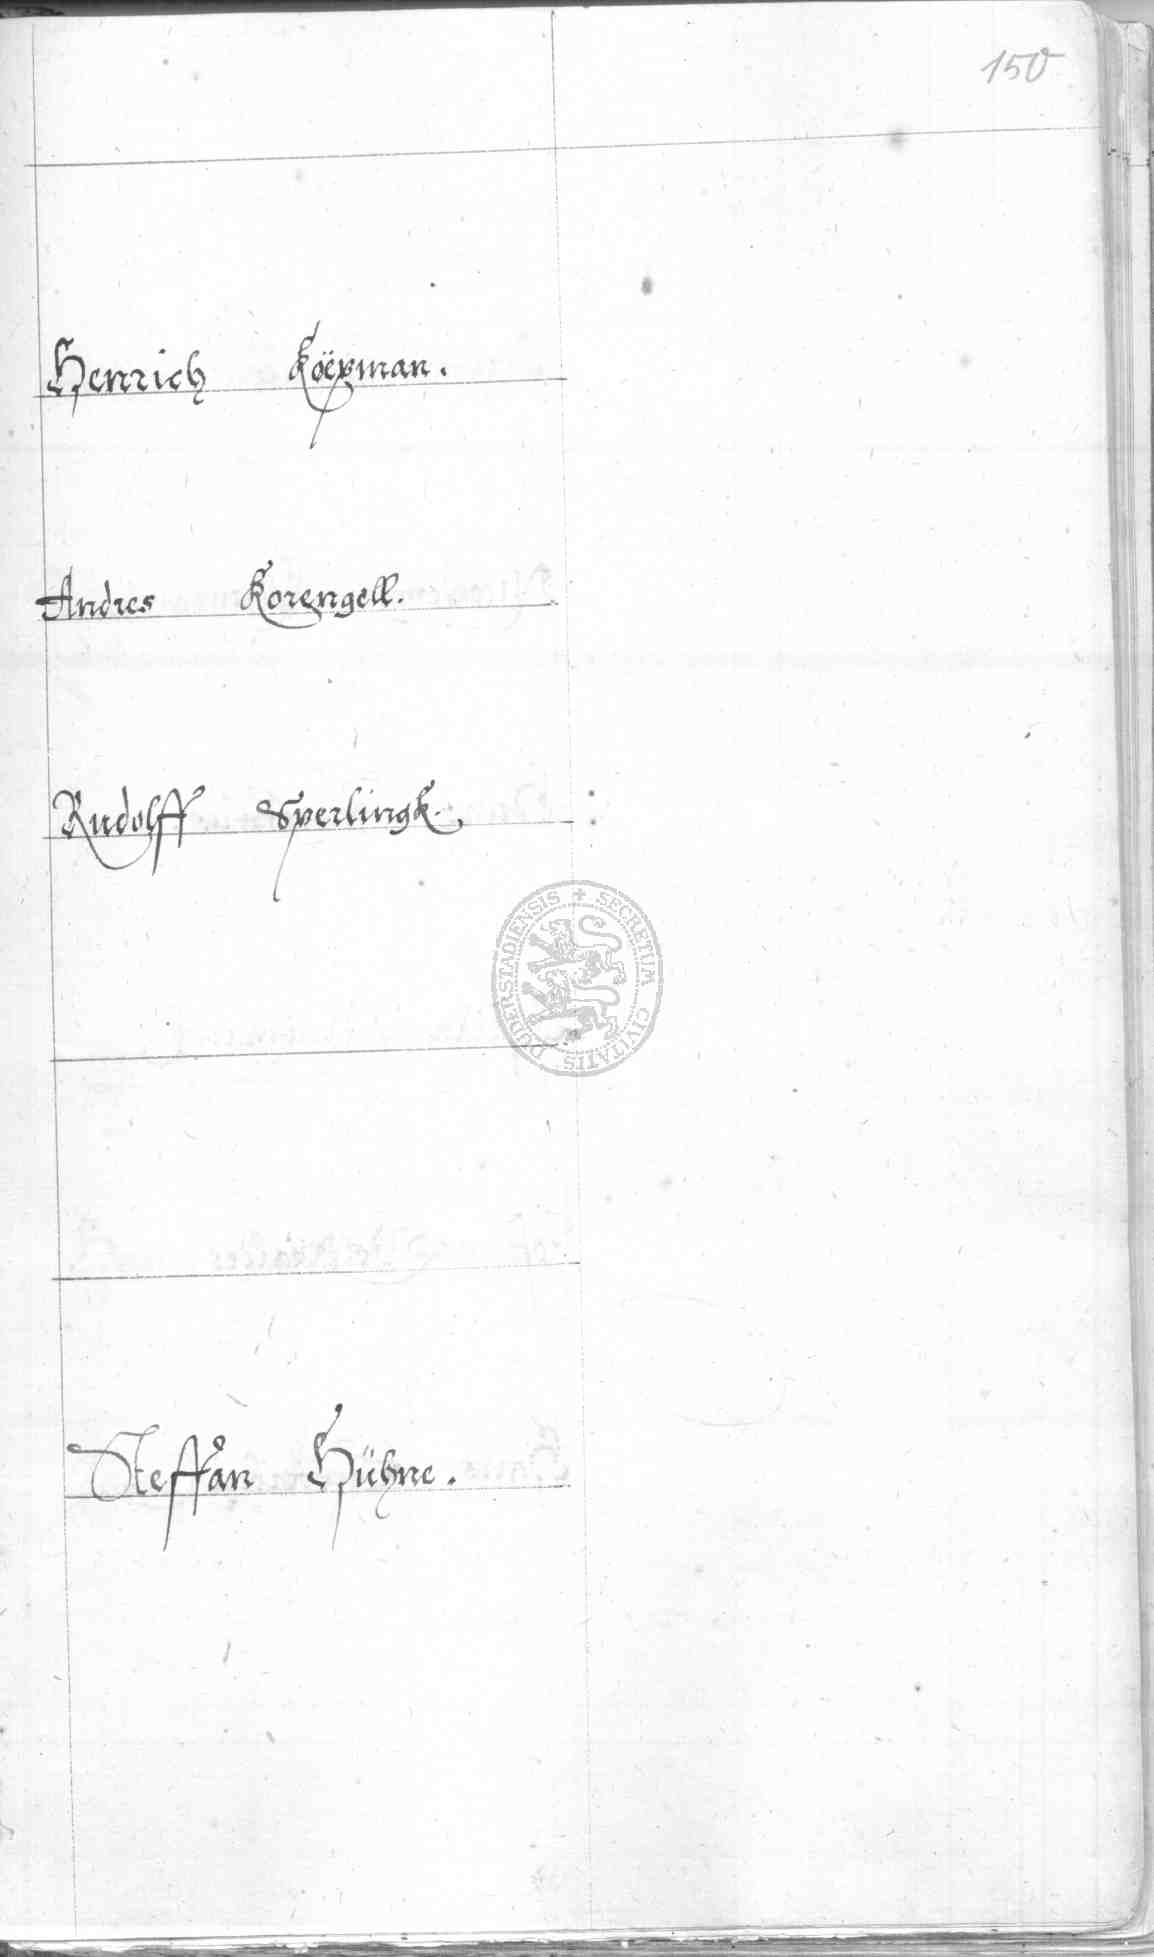 150
Henrich Köepman.
Andres Korengell.
Rudolff Sperlingk.
SECRETUM CIVITATIS DUDERSTADIENSIS
Steffan Hühne.